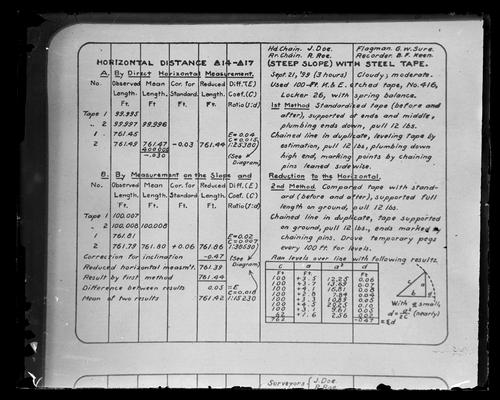 Hd. Chain. J. Doe. Flagman. G. W. Sure.
Rr. Chain. R. Roe. Recorder. B. F. Keen.
HORIZONTAL DISTANCE Δ14-Δ17 (STEEP SLOPE) WITH STEEL TAPE.
A. By Direct Horizontal Measurement.
No. Observed Mean Cor. for Reduced Diff. (E)
Length. Length. Standard. Length. Coef. (C)
Ft. Ft. Ft. Ft. Ratio (1:d)
Tape 1 99.995
" 2 99.997 99.996
1 761.45 E=0.04
2 761.49 761.47 -0.03 761.44 1:25380
-.030 (See Diagram)
B. By Measurement on the Slope and
No. Observed Mean Cor. for Reduced Diff. (E)
Length. Length. Standard. Length. Coef. (C)
Ft. Ft. Ft. Ft. Ratio (1:d)
Tape 1 100.007
" 2 100.008 100.008
1 761.81 E=0.02
2 761.79 761.80 +0.06 761.86
Correction for inclination -0.47 (See
Reduced horizontal measm't. 761.39 Diagram)
Result by first method 761.44
Difference between results 0.05 =E
C=0.018
Mean of two results 761.42 1:15230
Sept. 21, '99 (3 hours) Cloudy; moderate.
Used 100-Ft. K. & E. etched tape, No. 416,
Locker 26, with spring balance.
1st Method Standardized tape (before and
after), supported at ends and middle,
plumbing ends down, pull 12 lbs.
Chained line in duplicate, leveling tape by
estimation, pull 12 lbs, plumbing down
high end, marking points by chaining
pins leaned sidewise.
Reduction to the Horizontal.
2nd Method. Compared tape with stand-
ard (before and after), supported full
length on ground, pull 12 lbs.
Chained line in duplicate, tape supported
on ground, pull 12 lbs, ends marked by
chaining pins. Drove temporary pegs
every 100 ft. for levels.
Ran levels over line with following results.
c a a² d
Ft. Ft. Ft.
100 +3.5 12.25 0.06
100 +3.7 13.69 0.07
100 +4.1 16.81 0.08
100 +2.8 7.84 0.04
100 +3.3 10.89 0.05
100 +4.5 20.25 0.10
100 +3.1 9.61 0.05
62 +1.6 2.56 0.02
762 -0.47 =Σd
c a
b d
With a small,
d = a²/2c (nearly)
Surveyors { J. Doe.
R. Roe.